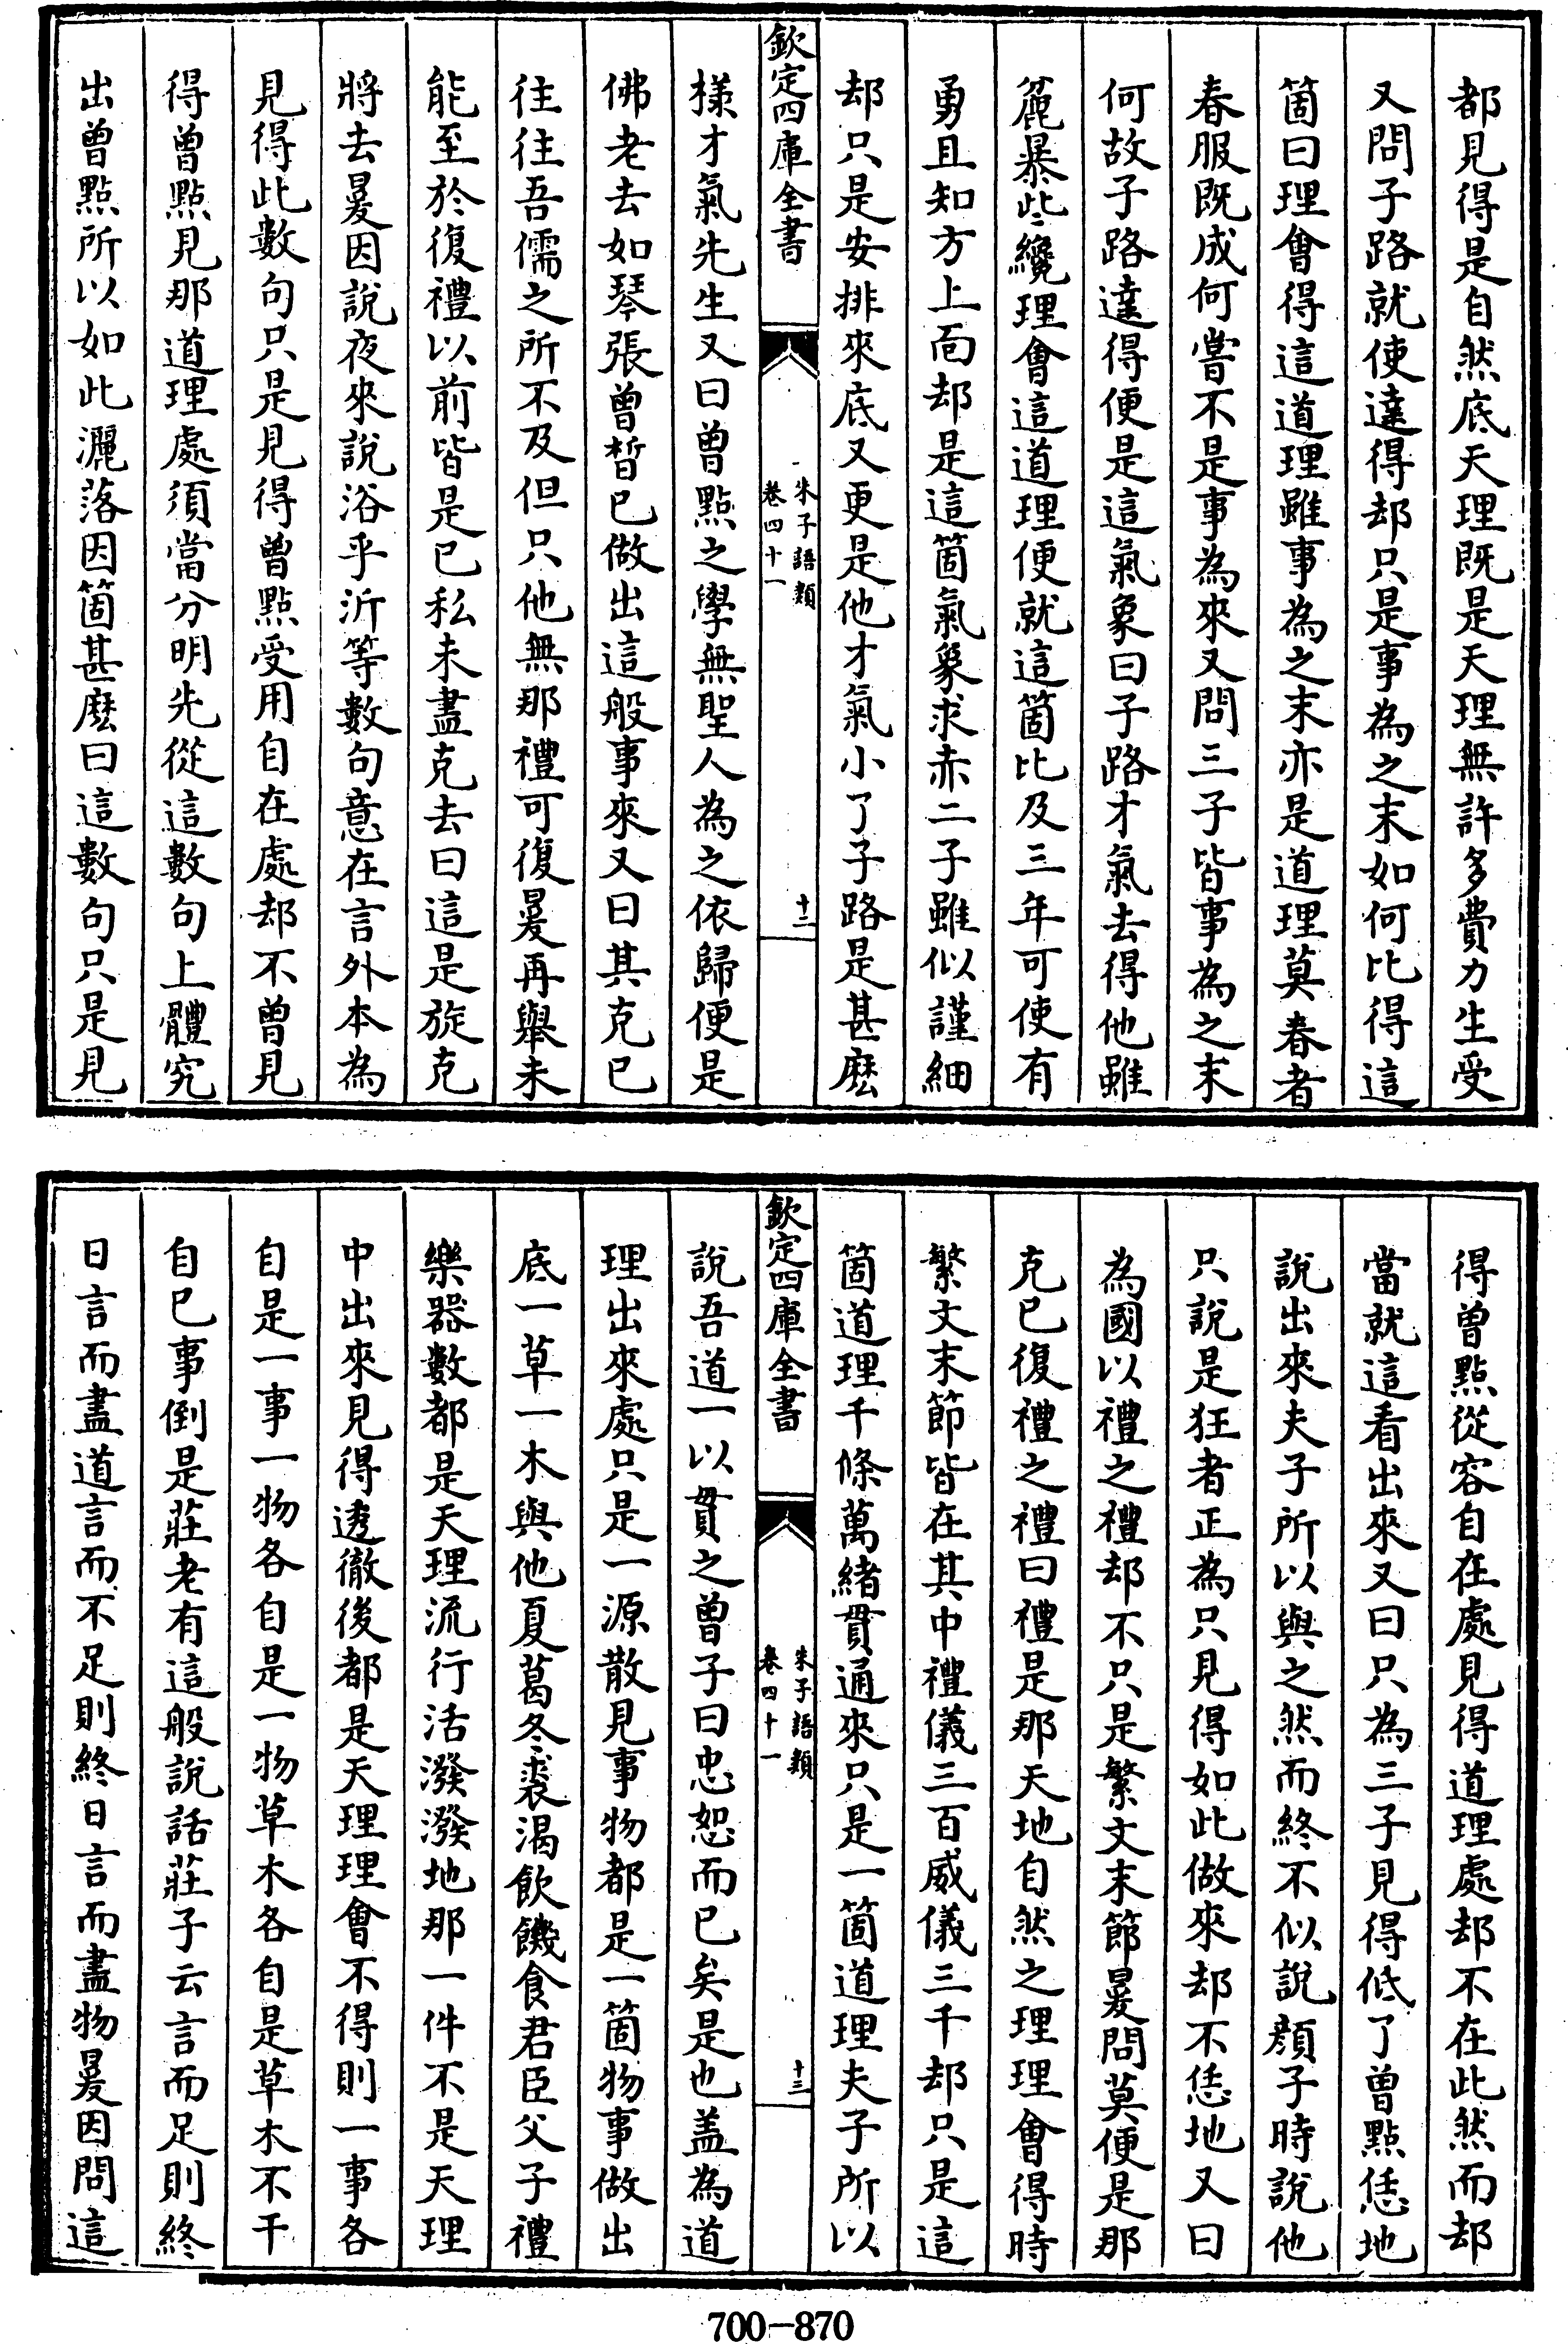 都見得是自然底天理既是天理無許多費力生受
又問子路就使達得却只是事為之末如何比得這
箇曰理會得這道理雖事為之末亦是道理莫春者
春服既成何嘗不是事為來又問三子皆事為之末
何故子路達得便是這氣象曰子路才氣去得他雖
麄暴些纔理會這道理便就這箇比及三年可使有
勇且知方上面却是這箇氣象求赤二子雖似謹細
却只是安排來底又更是他才氣小了子路是甚麽
欽定四庫全書
朱子語類
卷四十一
十二
様才氣先生又曰曾點之學無聖人為之依歸便是
佛老去如琴張曾晳已做出這般事來又曰其克己
往往吾儒之所不及但只他無那禮可復㬊再舉未
能至於復禮以前皆是己私未盡克去曰這是旋克
將去㬊因說夜來說浴乎沂等數句意在言外本為
見得此數句只是見得曾點受用自在處却不曾見
得曾點見那道理處須當分明先從這數句上體究
出曾點所以如此灑落因箇甚麽曰這數句只是見
得曾點從容自在處見得道理處却不在此然而却
當就這看出來又曰只為三子見得低了曾點恁地
說出來夫子所以與之然而終不似說顔子時說他
只說是狂者正為只見得如此做來却不恁地又曰
為國以禮之禮却不只是繁文末節㬊問莫便是那
克已復禮之禮曰禮是那天地自然之理理會得時
繁文末節皆在其中禮儀三百威儀三千却只是這
箇道理千條萬緒貫通來只是一箇道理夫子所以
欽定四庫全書
朱子語類
卷四十一
十三
說吾道一以貫之曾子曰忠恕而已矣是也盖為道
理出來處只是一源散見事物都是一箇物事做出
底一草一木與他夏葛冬裘渴飲饑食君臣父子禮
樂器數都是天理流行活潑潑地那一件不是天理
中出來見得透徹後都是天理理會不得則一事各
自是一事一物各自是一物草木各自是草木不干
自己事倒是莊老有這般說話莊子云言而足則終
日言而盡道言而不足則終日言而盡物㬊因問這
700-870